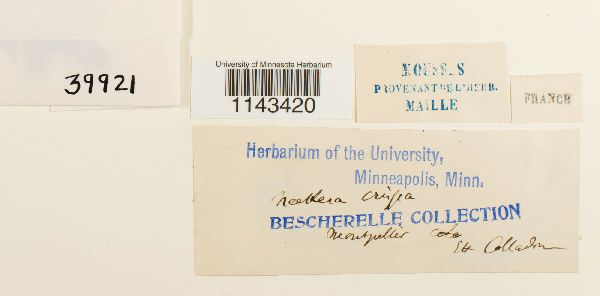 39921
University of Minnesota Herbarium
1143420
MOUSSES
PROVENANT DE L'HERB.
MAILLE
FRANCE
Herbarium of the University,
Minneapolis, Minn.
Neckera crispa
BESCHERELLE COLLECTION
Montpellier